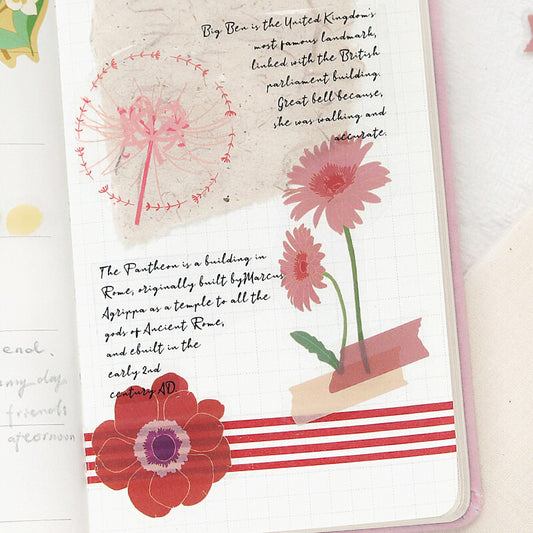 Big Ben is the United Kingdom's
most famous landmark,
linked with the British
parliament building.
Great bell because,
she was walking and
accurate.
The Pantheon is a building in
Rome, originally built byMarcus
Agrippa as a temple to all the
gods of Ancient Rome,
and ebuilt in the
early 2nd
century AD
end.
ny day
friends
afternoon